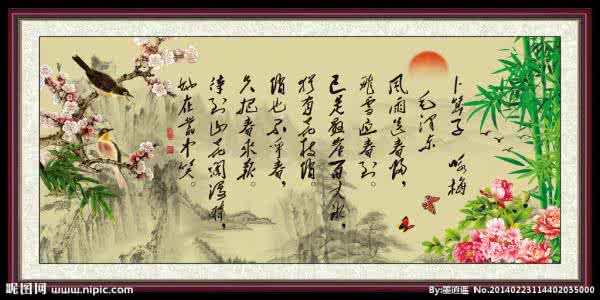 卜算子 咏梅
毛泽东
风雨送春归，
飞雪迎春到。
已是悬崖百丈冰，
犹有花枝俏。
俏也不争春，
只把春来报。
待到山花烂漫时，
她在丛中笑。
昵图网 www.nipic.com
By:墨逍遥 No.20140223114402035000